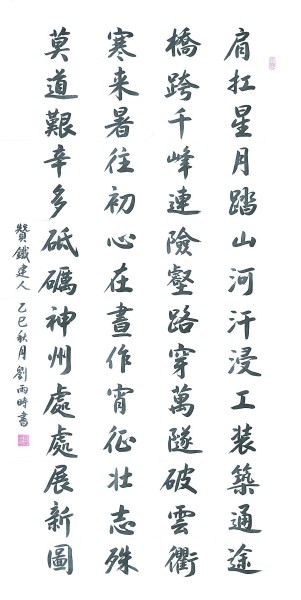 肩扛星月踏山河汗浸工装築通途
橋跨千峰連險壑路穿萬隧破雲衢
寒来暑往初心在晝作宵征壮志殊
莫道艱辛多砥礪神州處處展新圖
贊鐵建人 乙巳秋月劉雨時書